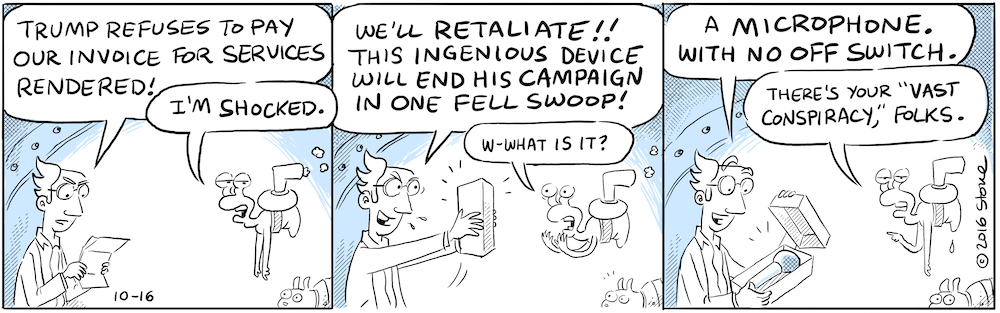 TRUMP REFUSES TO PAY
OUR INVOICE FOR SERVICES
RENDERED!
I'M SHOCKED.
10-16
WE'LL RETALIATE!!
THIS INGENIOUS DEVICE
WILL END HIS CAMPAIGN
IN ONE FELL SWOOP!
W-WHAT IS IT?
A MICROPHONE.
WITH NO OFF SWITCH.
THERE'S YOUR "VAST
CONSPIRACY," FOLKS.
©2016 Stone